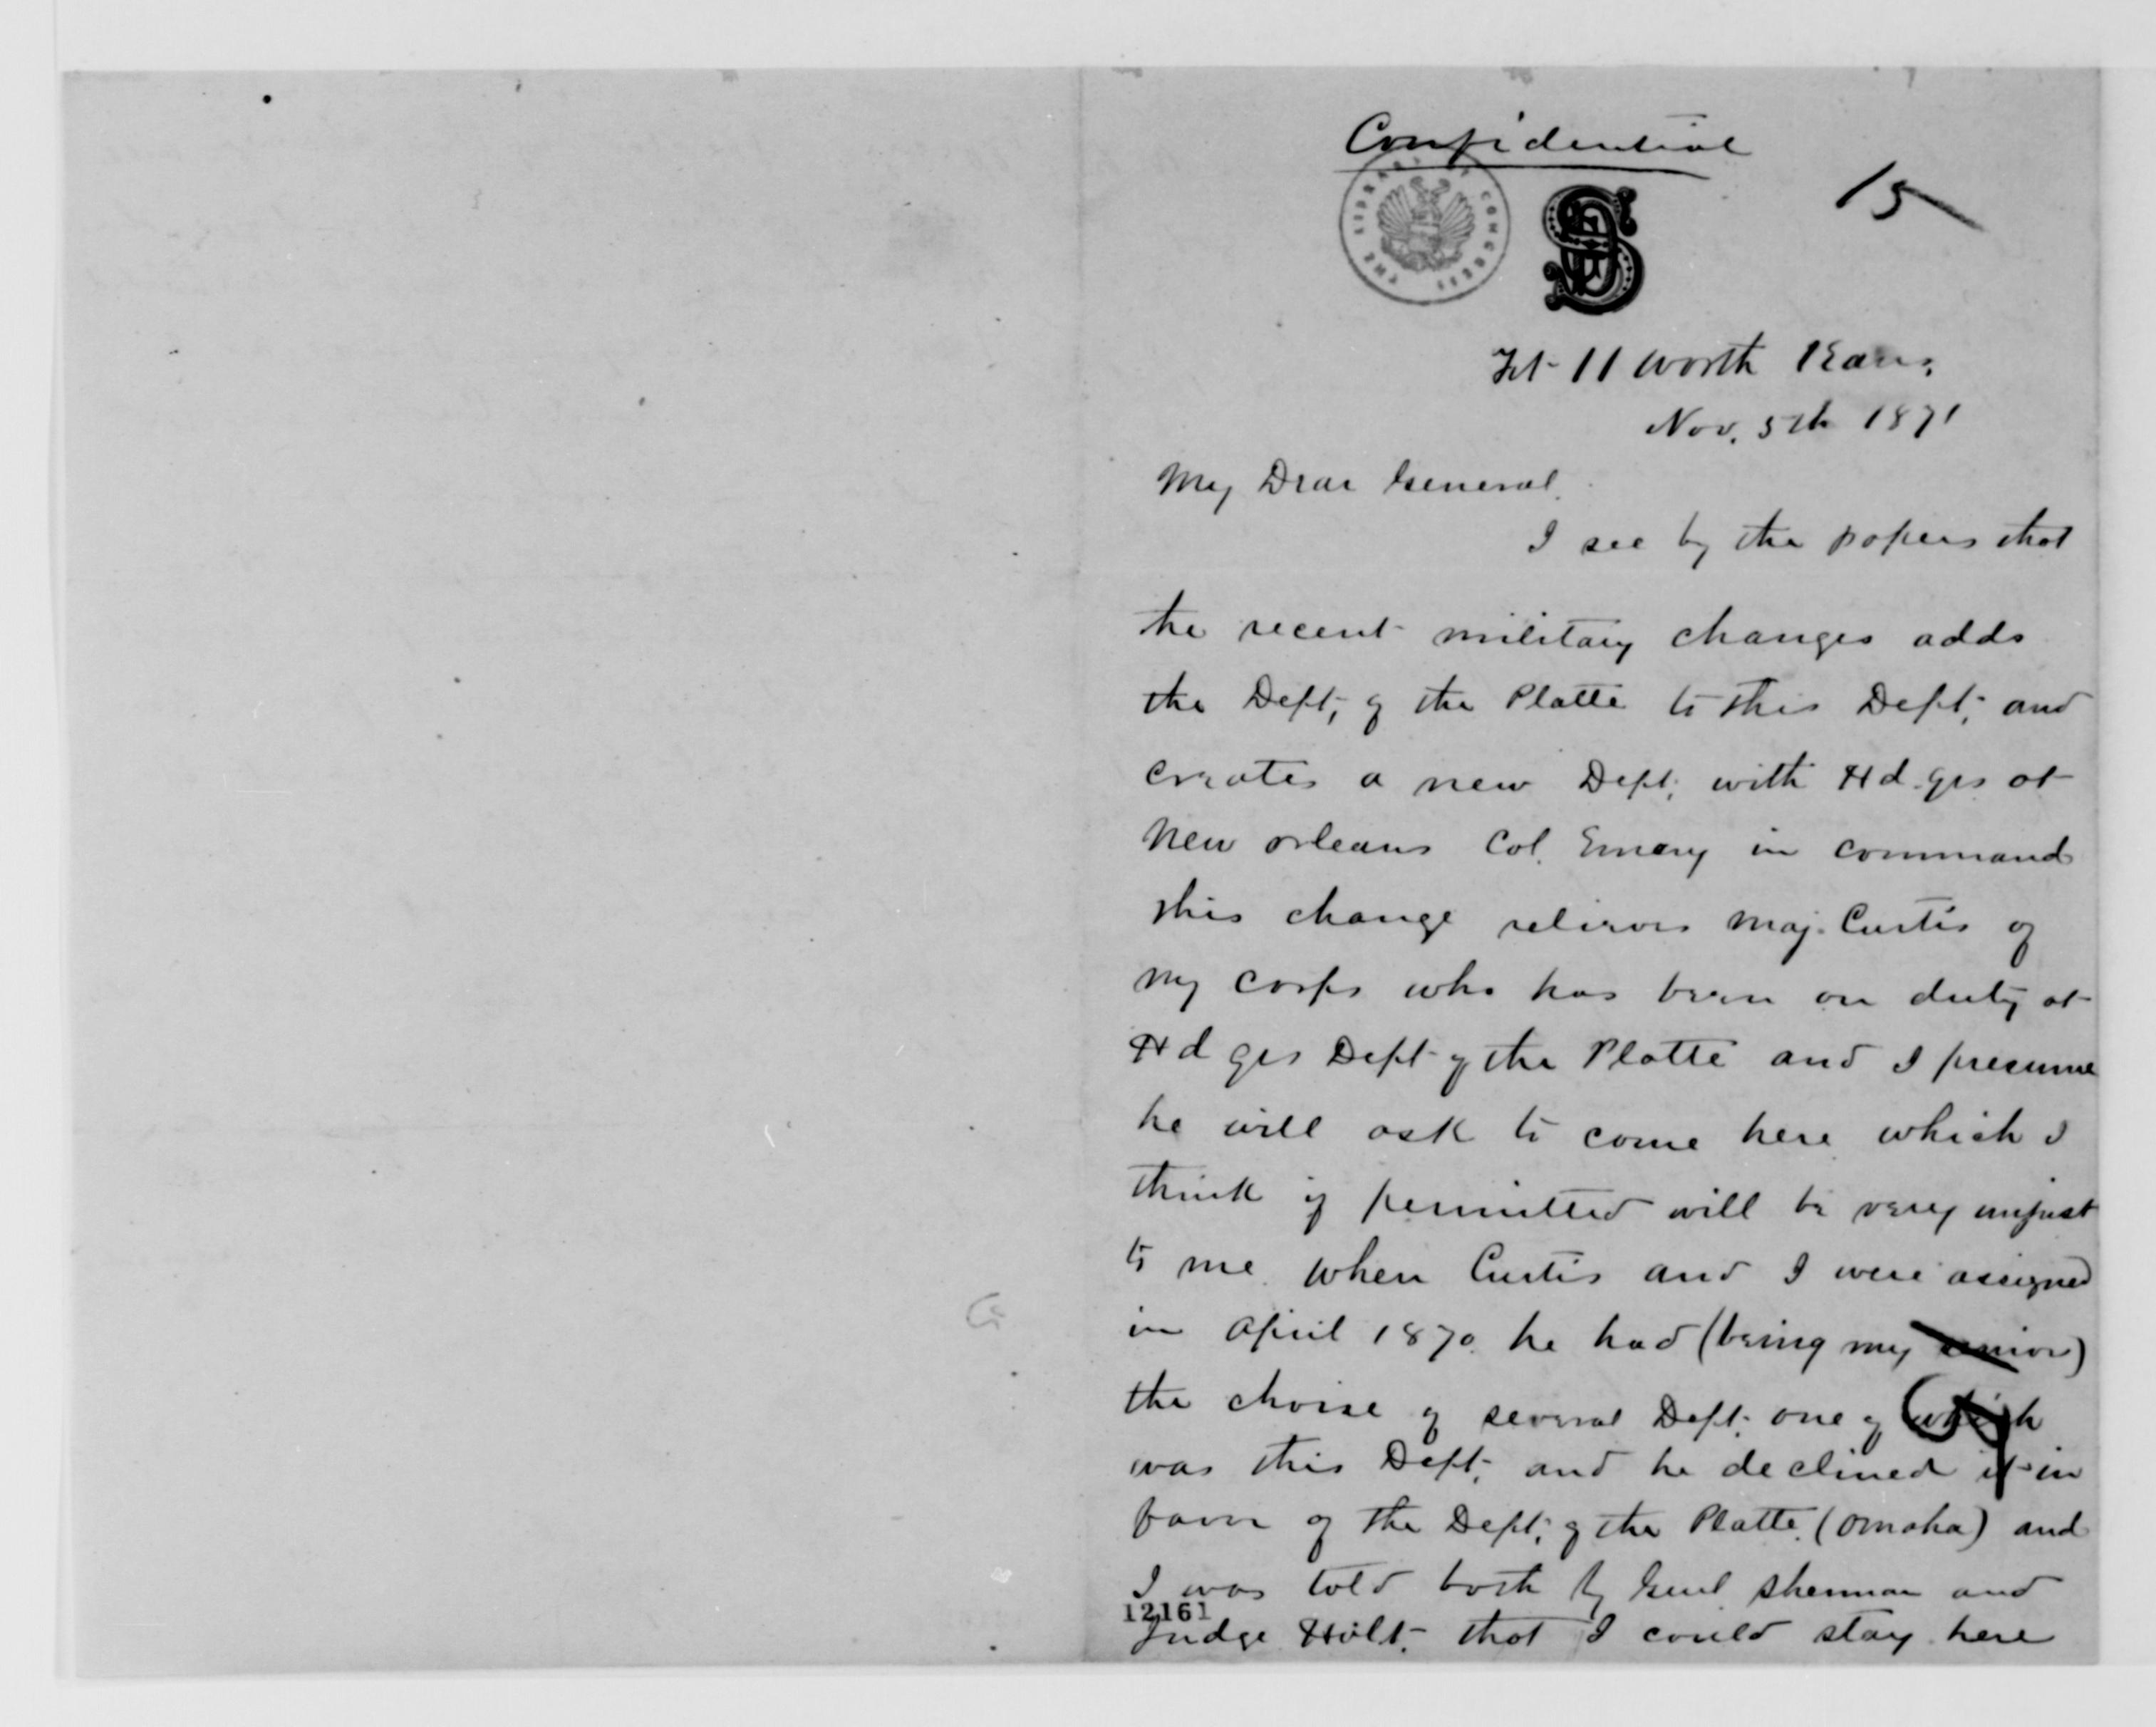 Confidential
15
THE LIBRARY OF CONGRESS
Ft- ll worth Kans.
Nov. 5th 1871
My Dear General.
I see by the papers that
the recent military changes adds
the Dept; of the Platte to this Dept; and
creates a new Dept; with Hd. qrs at
New Orleans Col. Emory in command
this change relieves Maj. Curtis of
my corps who has been on duty at
Hd qrs Dept of the Platte and I presume
he will ask to come here which I
think if permitted will be very unjust
to me. When Curtis and I were assigned
in April 1870. he had (being my senior)
the choise of several Dept; one of which
was this Dept; and he declined it in
favor of the Dept; of the Platte. (Omaha) and
I was told both by Genl Sherman and
12161
Judge Holt. that I could stay here